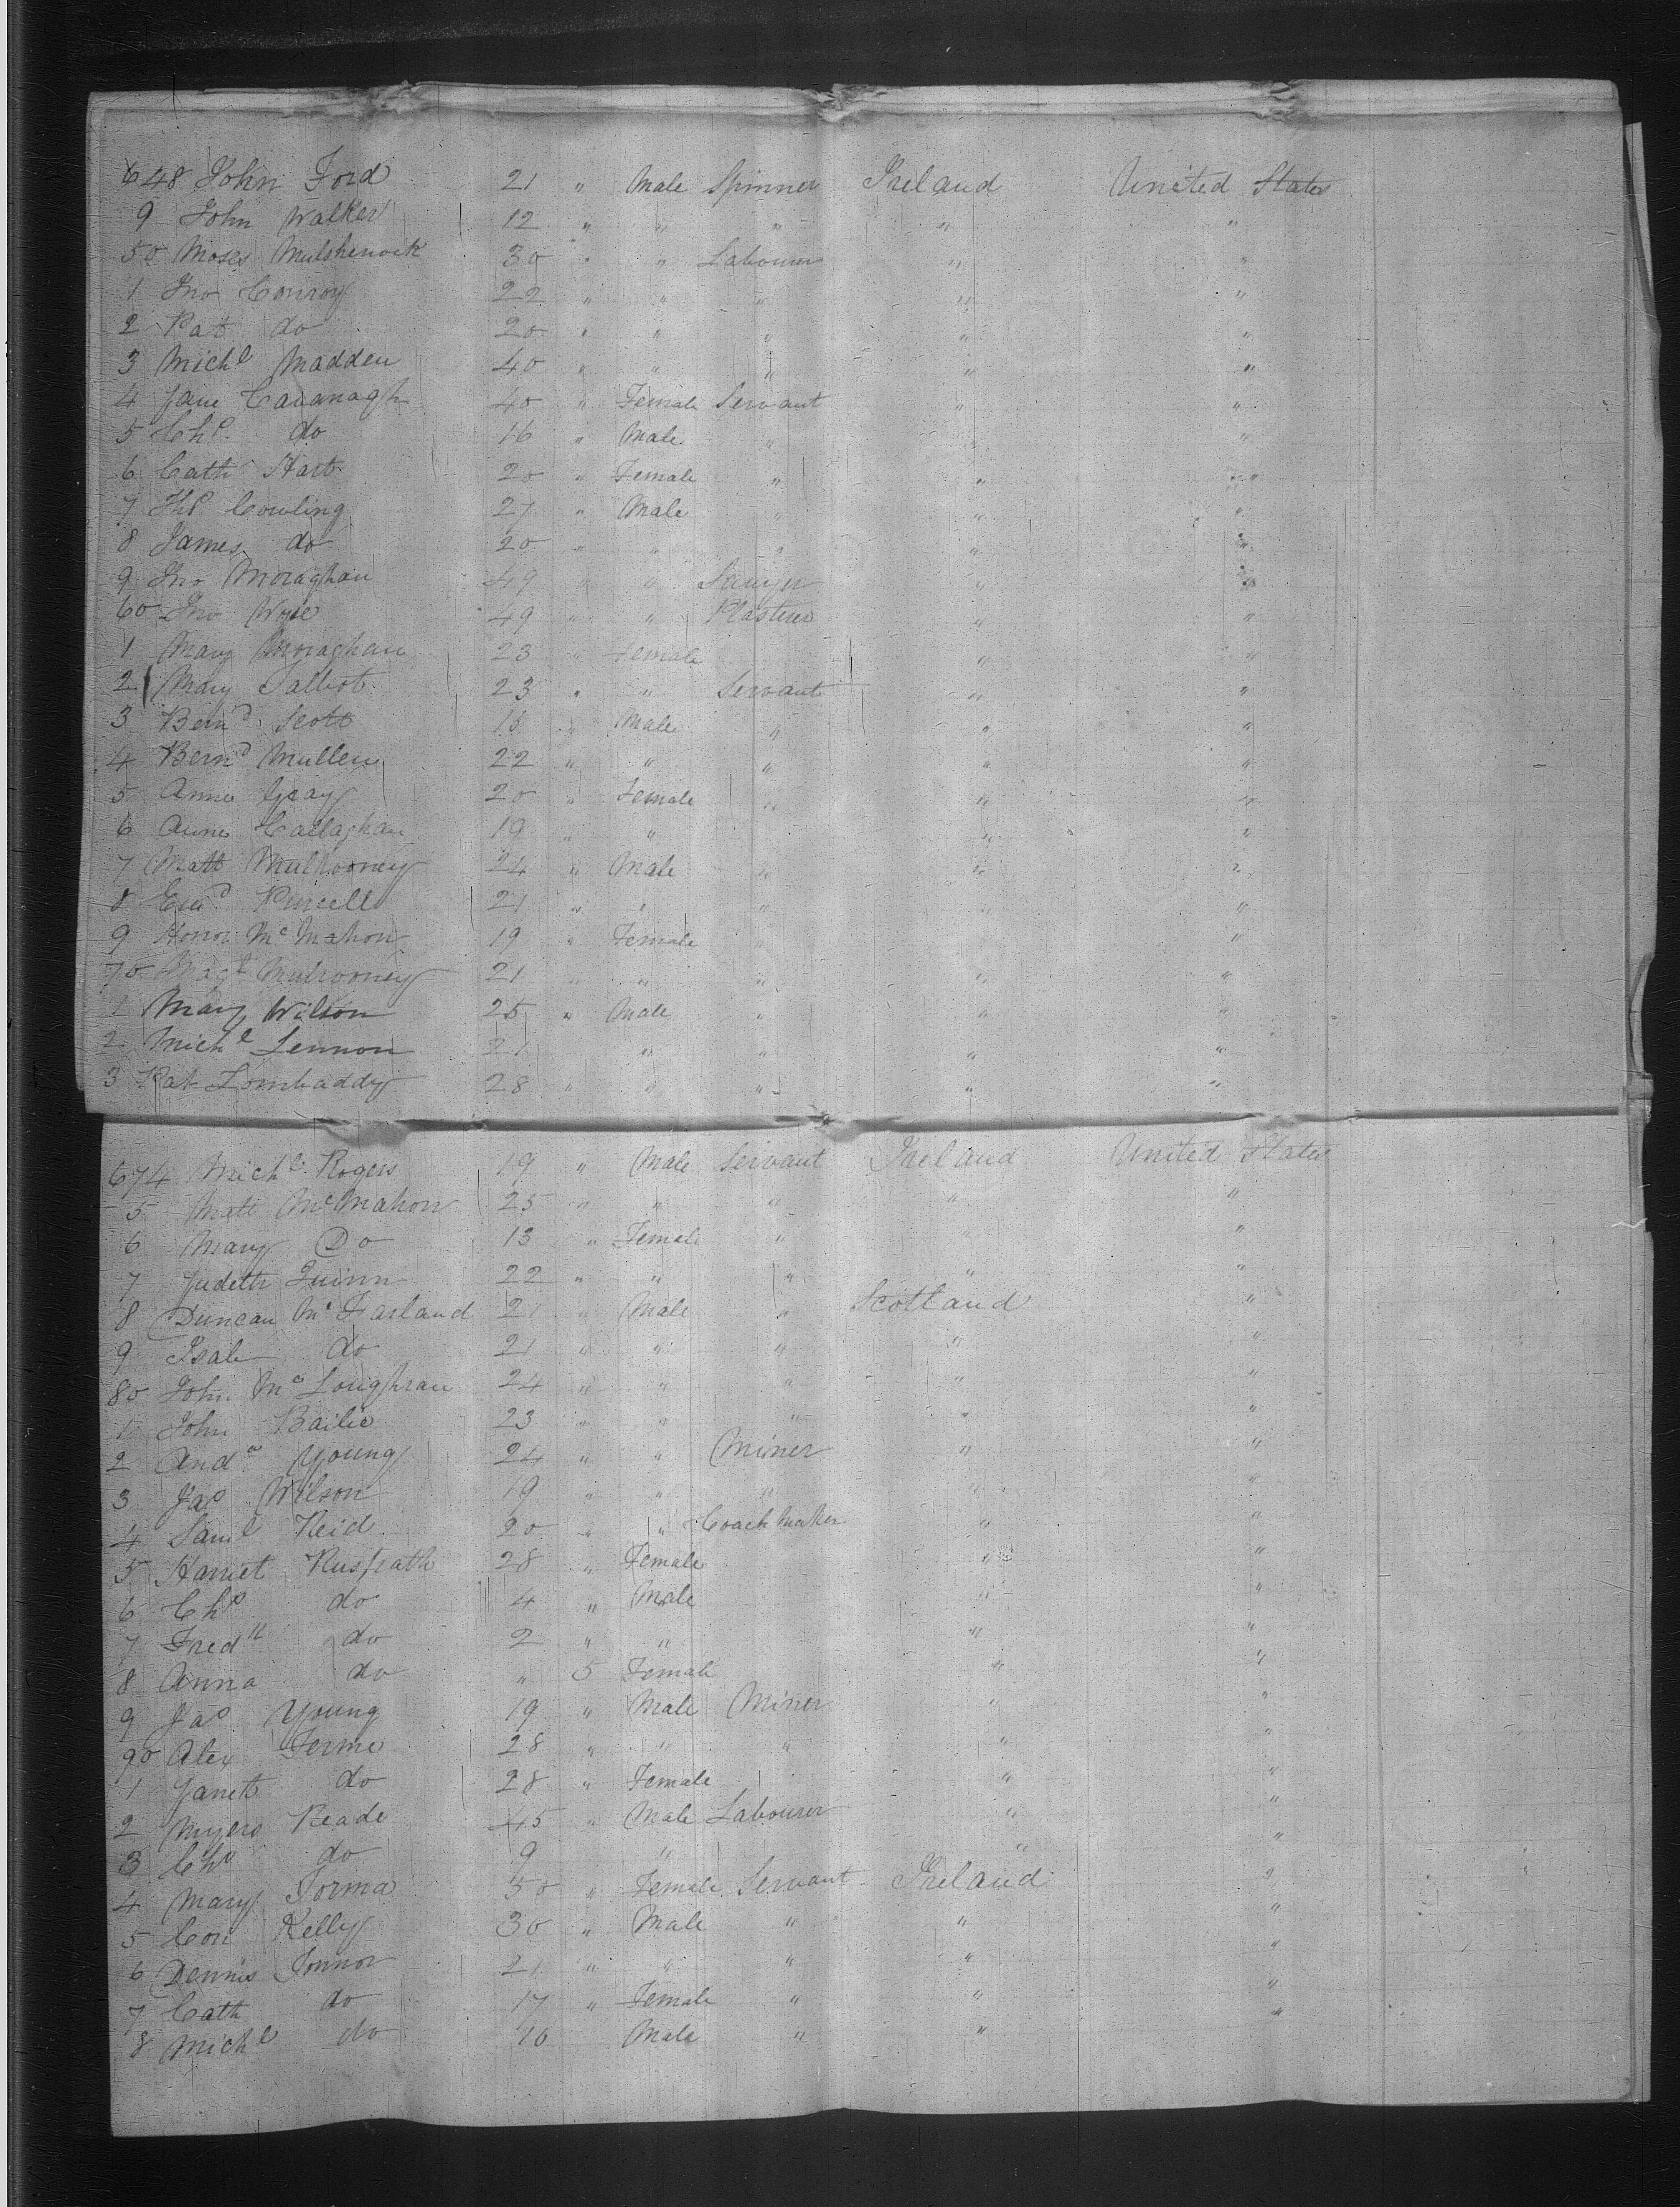 648 John Ford 21 " Male Spinner Ireland United States
9 John Walker 12 " " " " "
50 Moses Mulshenock 30 " " Labourer " "
1 Jno Conroy 22 " " " " "
2 Pat do 20 " " " " "
3 Michl Madden 40 " " " " "
4 Jane Cavanagh 40 " Female Servant " "
5 Chs do 16 " Male " " "
6 Cath Hart 20 " Female " " "
7 Ths Cowling 27 " Male " " "
8 James do 20 " " " " "
9 Jno Moraghan 49 " " Sawyer " "
60 Jno 49 " " Plasterer " "
1 Mary Moraghan 23 " Female " "
2 Mary Talbot 23 " " Servant " "
3 Bernd Scott 18 " Male " " "
4 Bernd Mullen 22 " " " " "
5 Anne Gray 20 " Female " " "
6 Anne Callaghan 19 " " " " "
7 Matt Mulrooney 24 " Male " " "
8 Edwd Purcell 21 " " " " "
9 Honor McMahon 19 " Female " " "
70 Magt Mulrooney 21 " " " " "
1 Mary Wilson 25 " Male " " "
2 Michl Lennon 21 " " " "
3 Pat Lombaddy 28 " " " " "
674 Michl Rogers 19 " Male Servant Ireland United States
5 Matt McMahon 25 " " " " "
6 Mary Do 13 " Female " " "
7 Judeth Quinn 22 " " " " "
8 Duncan McFarland 21 " Male " Scotland "
9 Isab do 21 " " " " "
80 John McLoughran 24 " " " " "
1 John Bailie 23 " " " " "
2 Andw Young 24 " " Miner " "
3 Jas Wilson 19 " " " " "
4 Saml Reid 20 " " Coach Maker " "
5 Harriet 28 " Female " "
6 Chs do 4 " Male " "
7 Fredk do 2 " " " "
8 Anna do " 5 Female " "
9 Jas Young 19 " Male Miner " "
90 Alex Ferme 28 " " " " "
1 Janet do 28 " Female " "
2 Myers Reade 45 " Male Labourer " "
3 Chs do 9 " " "
4 Mary Torma 50 " Female Servant Ireland "
5 Con Kelly 30 " Male " " "
6 Dennis Connor 21 " " " " "
7 Cath do 17 " Female " " "
8 Michl do 10 Male " "